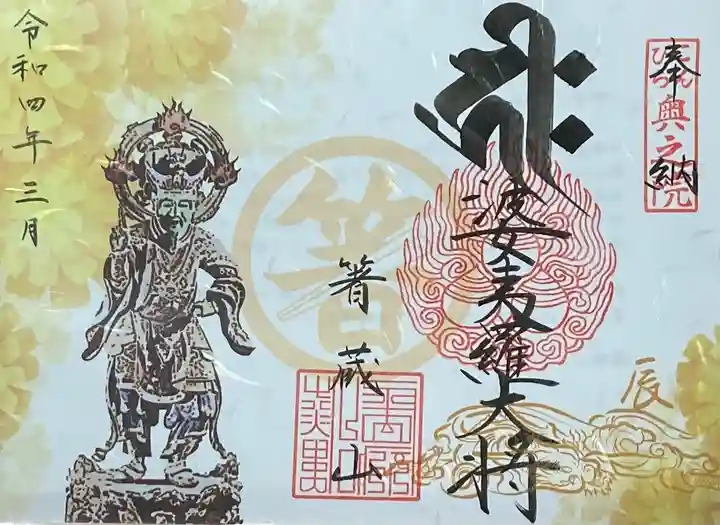 奉納
奥之院
婆夷羅大将
辰
箸
箸蔵山
令和四年三月